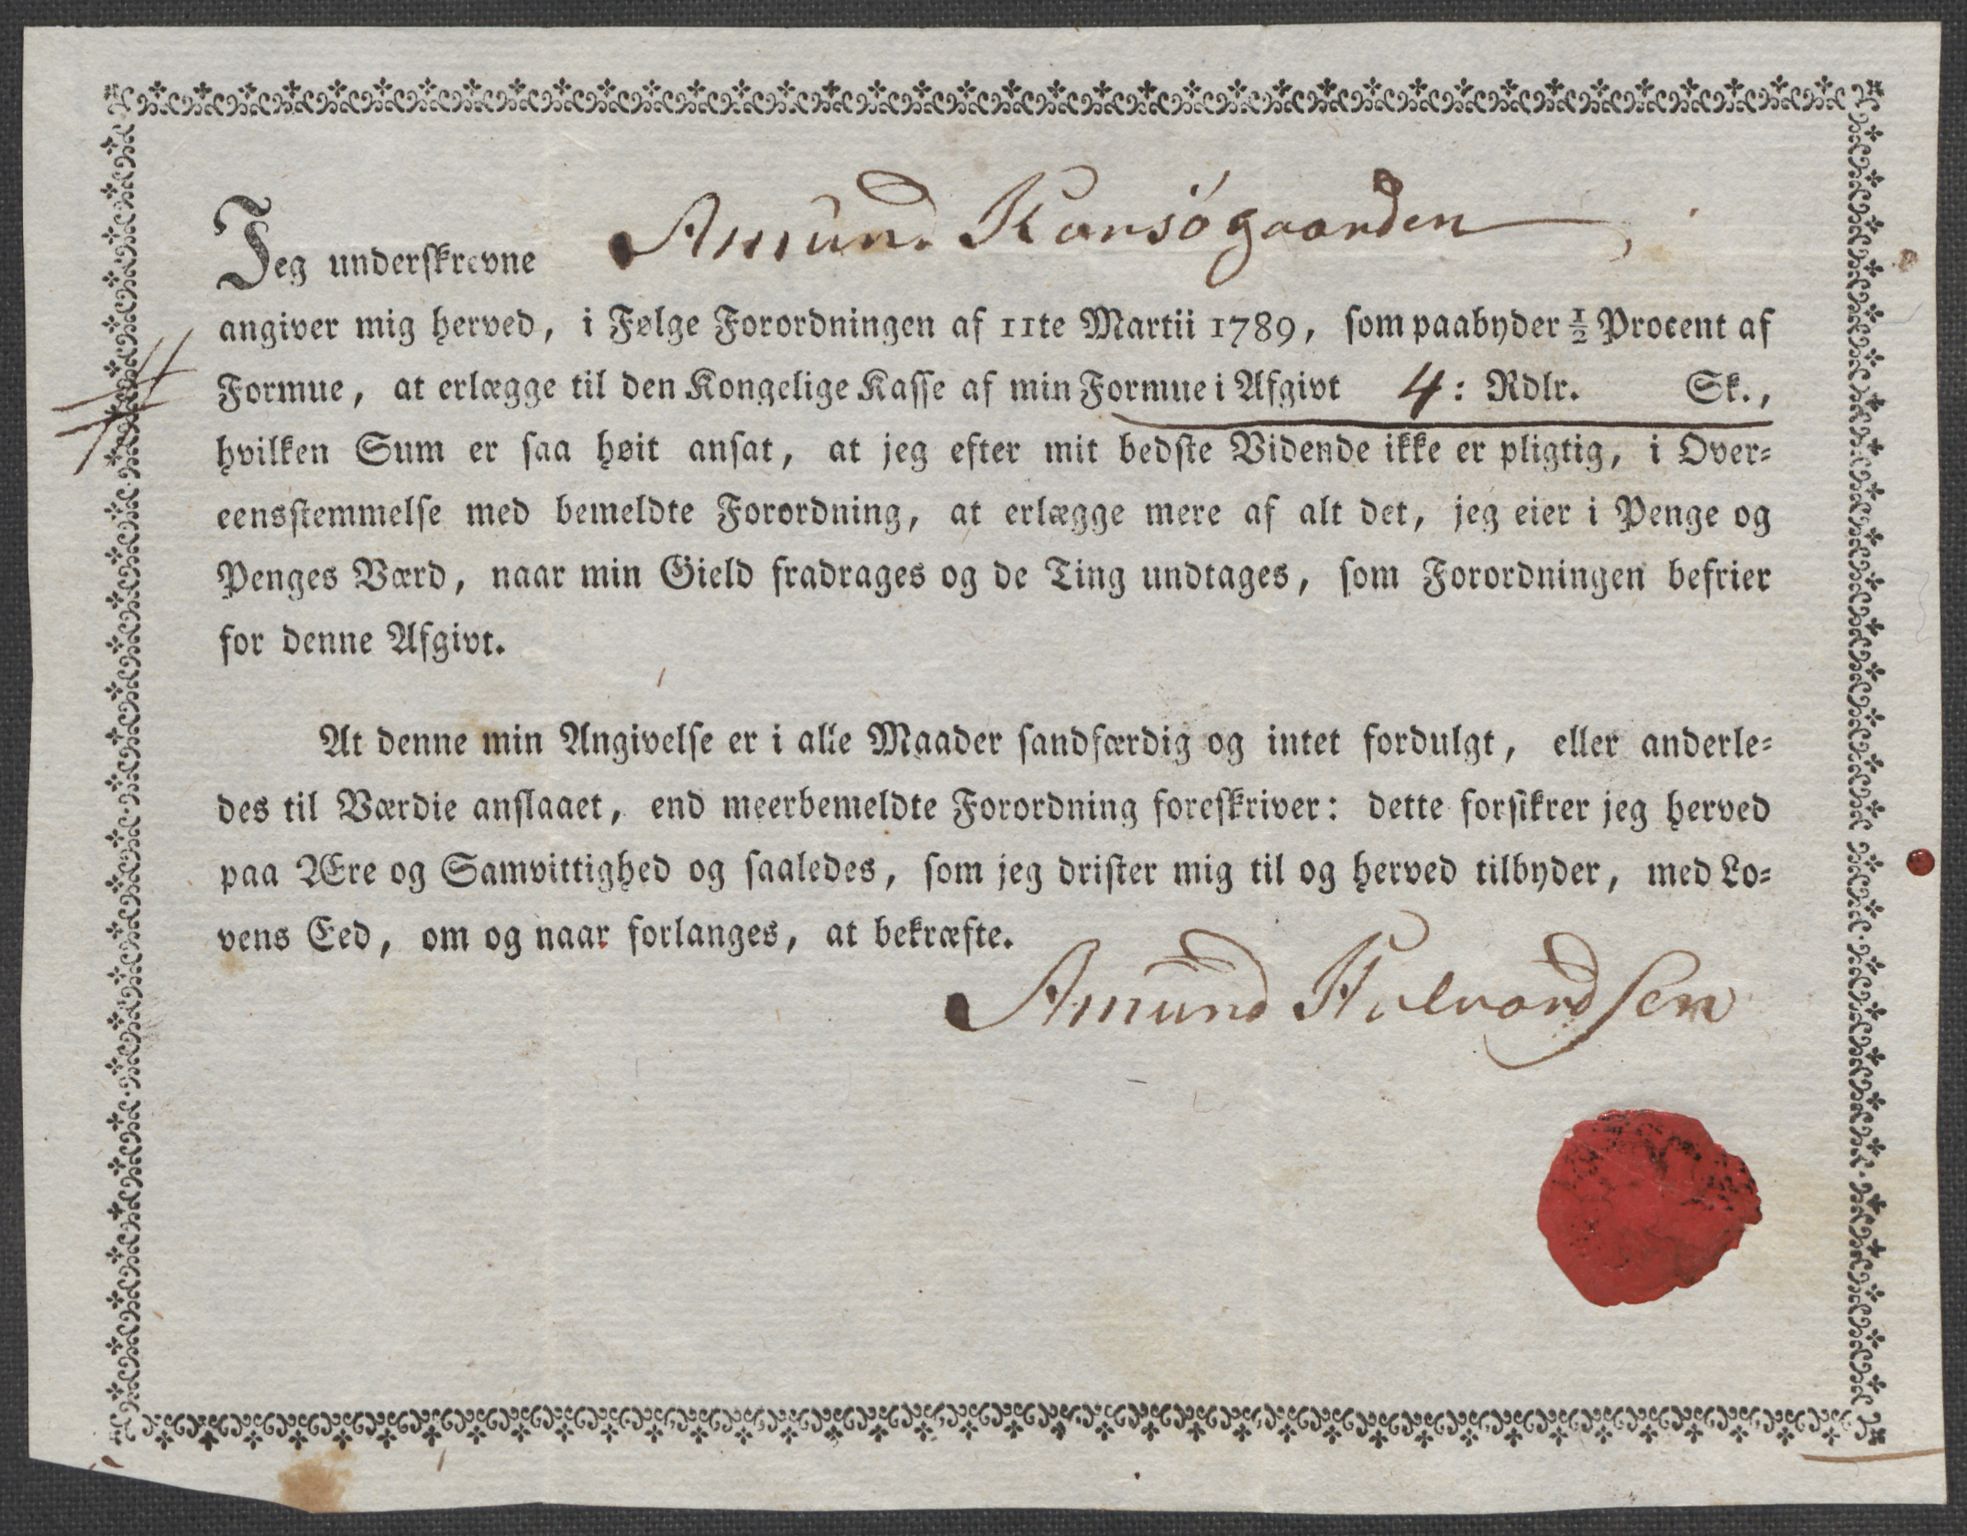 Jeg underskrevne Amund Korsögaarden
angiver mig herved, i Følge Forordningen af 11te Martii 1789, som paabyder ½ Procent af
Formue, at erlægge til den Kongelige Kasse af min Formue i Afgivt 4: Rdlr. Sk.,
hvilken Sum er saa høit ansat, at jeg efter mit bedste Vidende ikke er pligtig, i Over=
eensstemmelse med bemeldte Forordning, at erlægge mere af alt det, jeg eier i Penge og
Penges Værd, naar min Gield fradrages og de Ting undtages, som Forordningen befrier
for denne Afgivt.
At denne min Angivelse er i alle Maader sandfærdig og intet fordulgt, eller anderle=
des til Værdie anslaaet, end meerbemeldte Forordning foreskriver: dette forsikrer jeg herved
paa Ære og Samvittighed og saaledes, som jeg drister mig til og herved tilbyder, med Lo=
vens Eed, om og naar forlanges, at bekræfte.
Amund Halvordsen